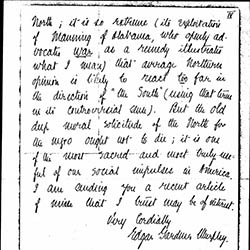 IV
North; it is so extreme (its exploitation
of Manning of Alabama, who openly ad-
vocates war as a remedy illustrates
what I mean) that average Northern
opinion is likely to react too far in
the direction of "the South" (using that term
in its controversial sense). But the old
deep moral solicitude of the North for
the negro ought not to die; it is one
of the most sacred and most truly use-
ful of our social impulses in America.
I am sending you a recent article
of mine that I trust may be of interest.
Very Cordially
Edgar Gardner Murphy.